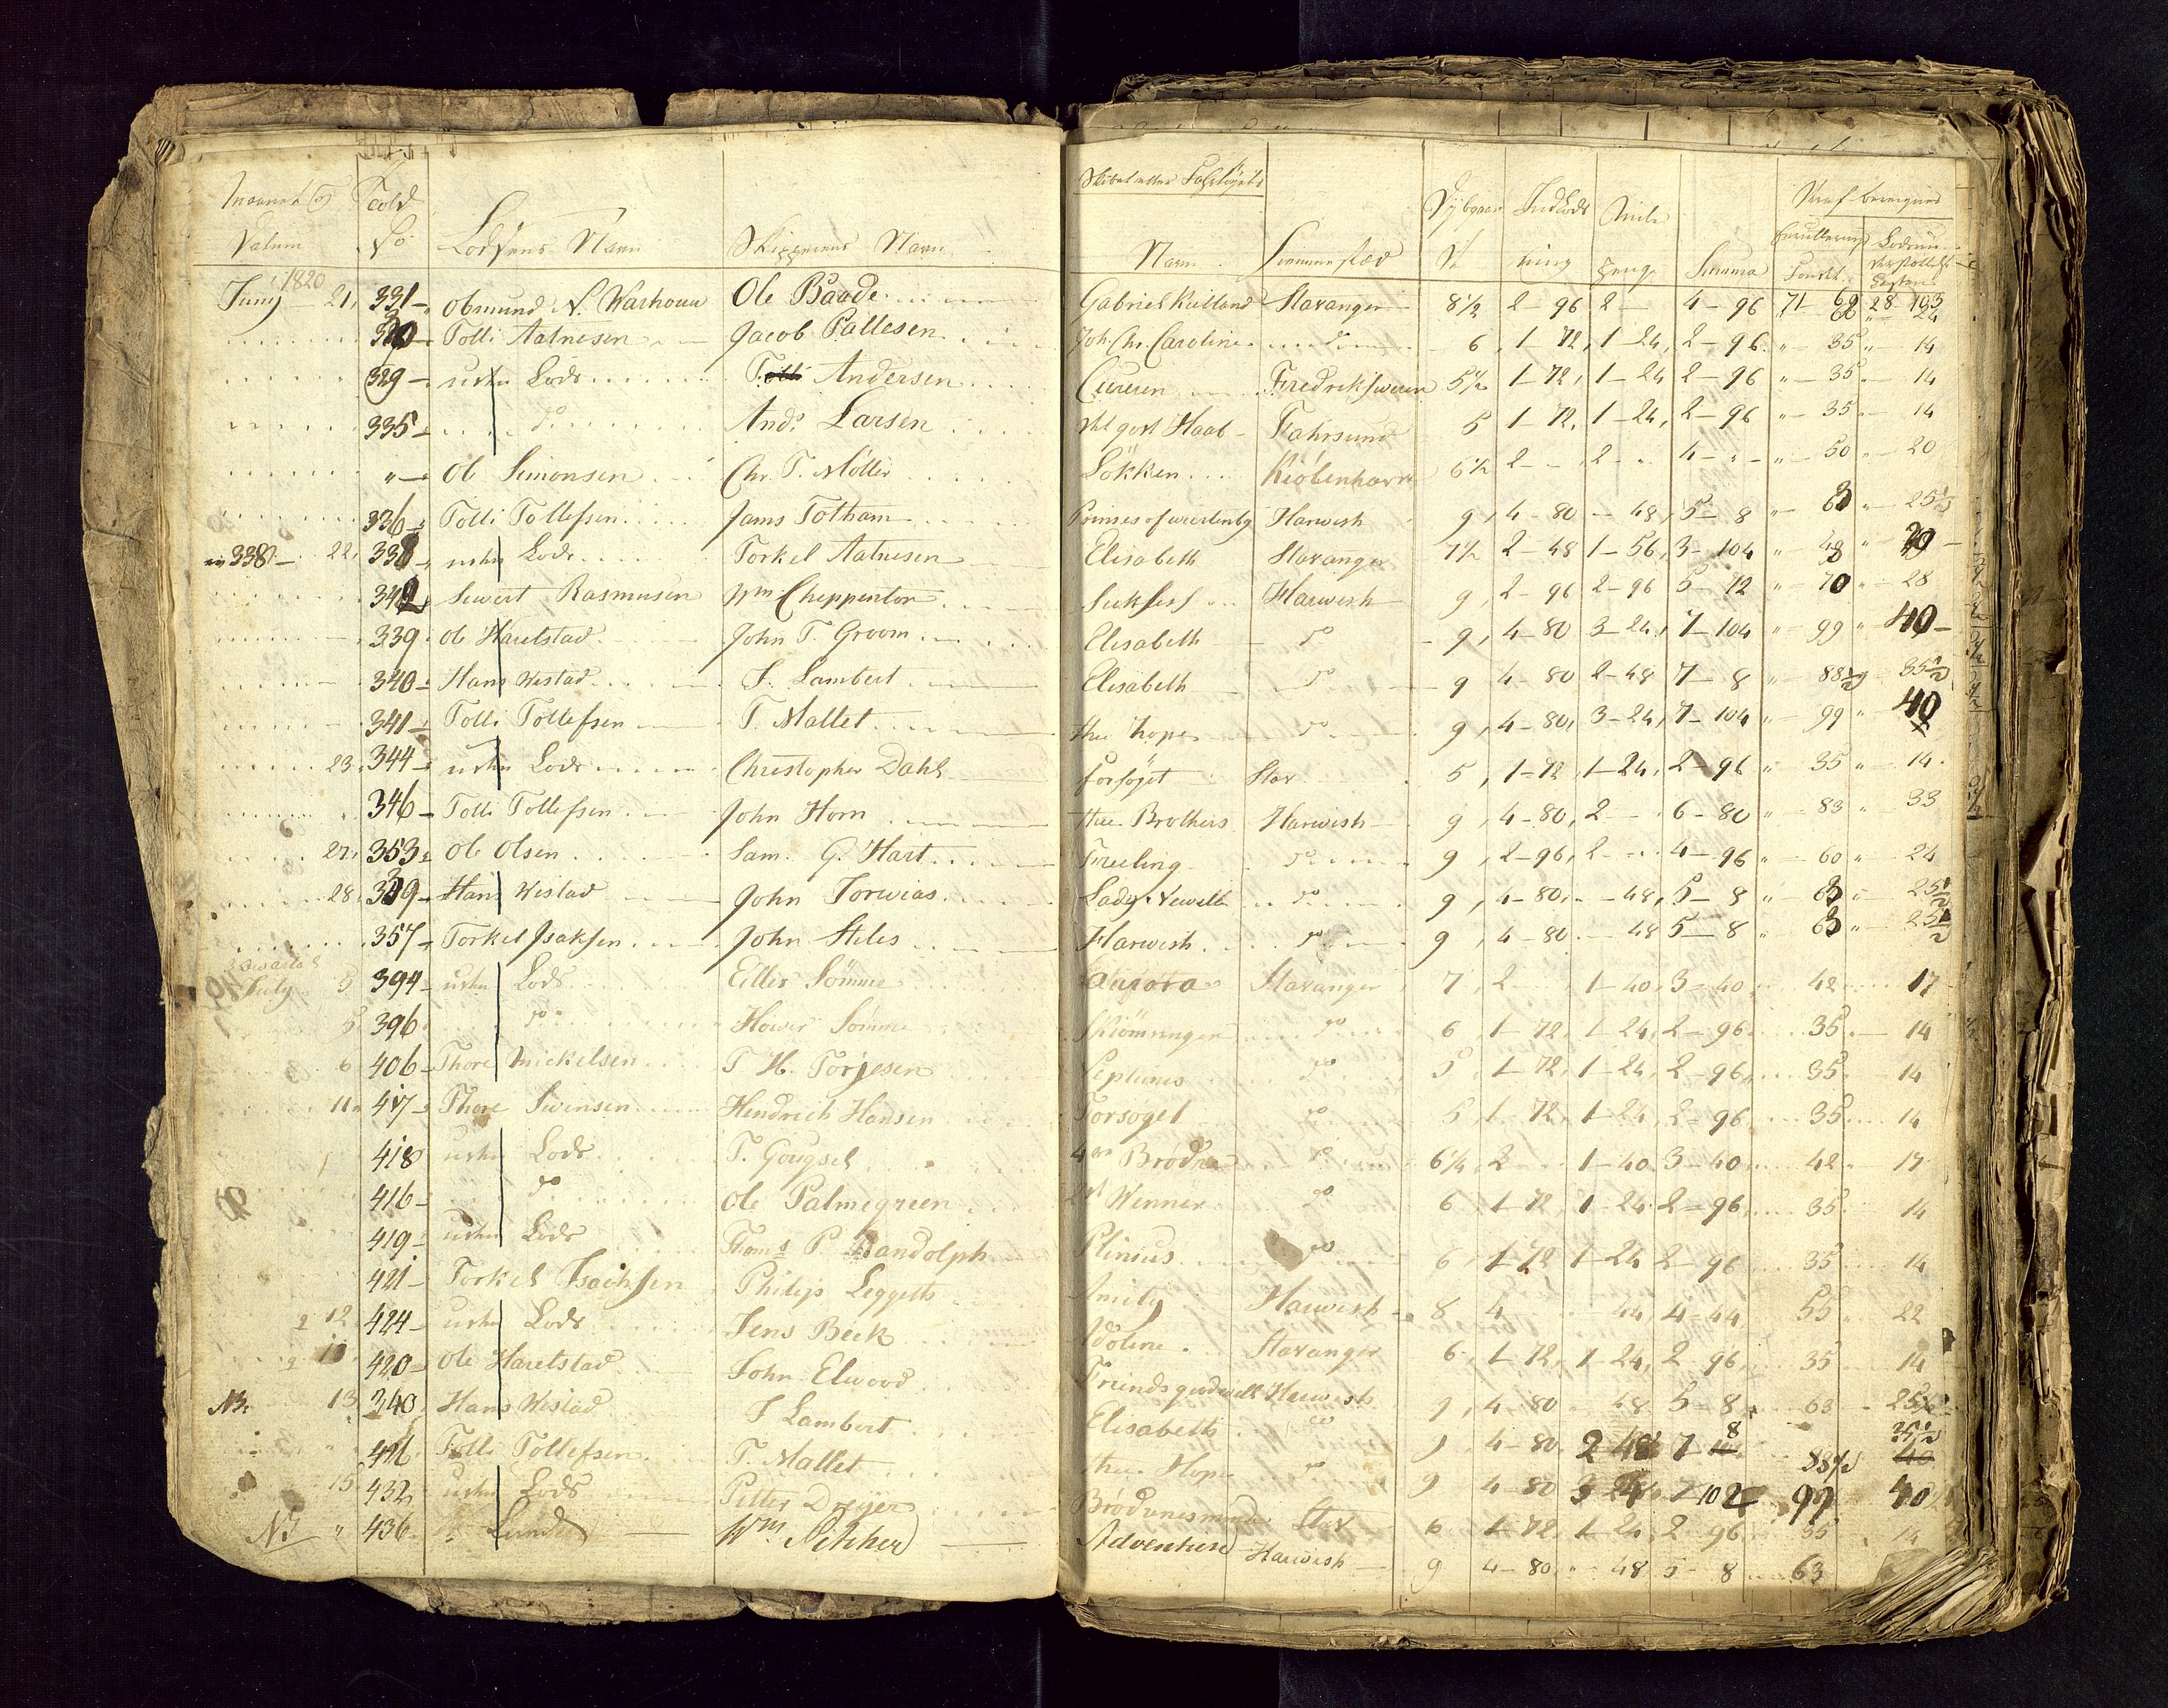 Maaned og Datum | Told No | Lodsens Navn | Skipperens Navn | Skibet eller Fartøyets Navn | Hiemmestæd | Dybgaaende | Indlods ning | Penge | Summa
1820
Juny 21, 331 – Ole Baade Stavanger 8½ 2–96 2 4–96 71 28
Tolli Aatnesen Jacob Pallesen Joh. Chr. Caroline do 6 1–72 1–24 2–96 " 35 " 14
329 – usten Lods Andersen Fredriksværn 5½ 1–72 1–24 2–96 " 35 " 14
335 – do And: Larsen det god Haab Fahrsund 5 1–72 1–24 2–96 " 35 " 14
" – Ole Simonsen Chr. T. Møller Løkken Kiøbenhavn 6½ 2 2 4 – " – " 50 " 20
336 – Tolli Tollefsen Jams Totham Harwish 9 4–80 48 5–8 " 63 " 25½
338 – 22, 338 usten Lods Torkel Aatnesen Elisabeth Stavanger 7½ 2–48 1–56 3–104 " 49 " 20
342 Siwert Rasmusen Wm Cheppenton Suksess Harwish 9 2–96 2–96 5–72 " 70 " 28
339 Ole Harestad John T. Groom Elisabeth do 9 4–80 3–24 7–104 " 99 " 40
340 Hans Wistad S. Lambert Elisabeth do 9 4–80 2–48 7–8 " 88½ 35½
341 Tolli Tollefsen T. Mallet the hope do 9 4–80 3–24 7–104 " 99 " 40
23 344 usten Lods Christopher Dahl forsøget Stav 5 1–72 1–24 2–96 " 35 " 14
346 – Tolli Tollefsen John Horn three Brothers Harwish 9 4–80 2 6–80 " 83 " 33
27 353 Ole Olsen Sam. G. Hart Freeling do 9 2–96 2 4–96 " 60 " 24
28 Hans Wistad John Lady Newell do 9 4–80 48 5–8 " 63 " 25½
357 – Torkel Isaksen John Stiles Harwish do 9 4–80 48 5–8 " 63 " 25½
July 3 394 – usten Lods Eiller Sømme Aurora Stavanger 7 2 1–40 3–40 42 17
5 396 do Sømme do 6 1–72 1–24 2–96 35 14
6 406 – Thore Mickelsen T H. Torjesen Neptunus do 5 1–72 1–24 2–96 35 14
11 417 – Thore Swensen Hendrich Hansen Forsøget do 5 1–72 1–24 2–96 35 14
418 usten Lods T. Gougsel 4re Brødre do 6¼ 2 1–40 3–40 42 17
416 – do Ole Palmegreen Wenner do 6 1–72 1–24 2–96 35 14
419 usten Lods Thoms P. Randolph Plinius do 6 1–72 1–24 2–96 35 14
421 – Torkel Isachsen Philip Leggetts Amity Harwish 8 4 44 4–44 55 22
12 424 – usten Lods Jens Beck Adoline Stavanger 6 1–72 1–24 2–96 35 14
420 – Ole Harelstad John Elwood Friends goodwill Harwish 9 4–80 48 5–8 63 25½
NB. 13 340 Hans Wistad S Lambert Elisabeth do 9 4–80 2 48 7 8 88½ 35½
Tolli Tollefsen T. Mallet the Hope do 9 4–80 3 24 7 102 99 40
15 432 usten Lods Petter Dreyer Stav 6 1–72 1–24 2–96 35 14
NB " 436 Lunde Wm Adventure Harwish 9 4–80 48 5–8 63